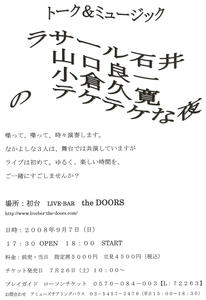 トーク＆ミュージック
ラサール石井
山口良一
小倉久寛
のテケテケな夜
喋って、喋って、時々演奏します。
なかよしな３人は、舞台では共演していますが
ライブは初めて。ゆるく、楽しい時間を、
ご一緒にすごしませんか？
場所：初台 LIVE-BAR the DOORS
http://www.livebar-the-doors.com/
日時：２００８年９月７日（日）
１７：３０ OPEN １８：００ START
料金：前売・当日 指定席５０００円 立見４５００円（税込）
チケット発売日 ７月２６日（土）１０：００～
プレイガイド ローソンチケット ０５７０－０８４－００３【L：７２２６３】
お問合わせ アミューズテアミングハウス ０３－５４５７－３４７６（平日１５：００～１８：３０）